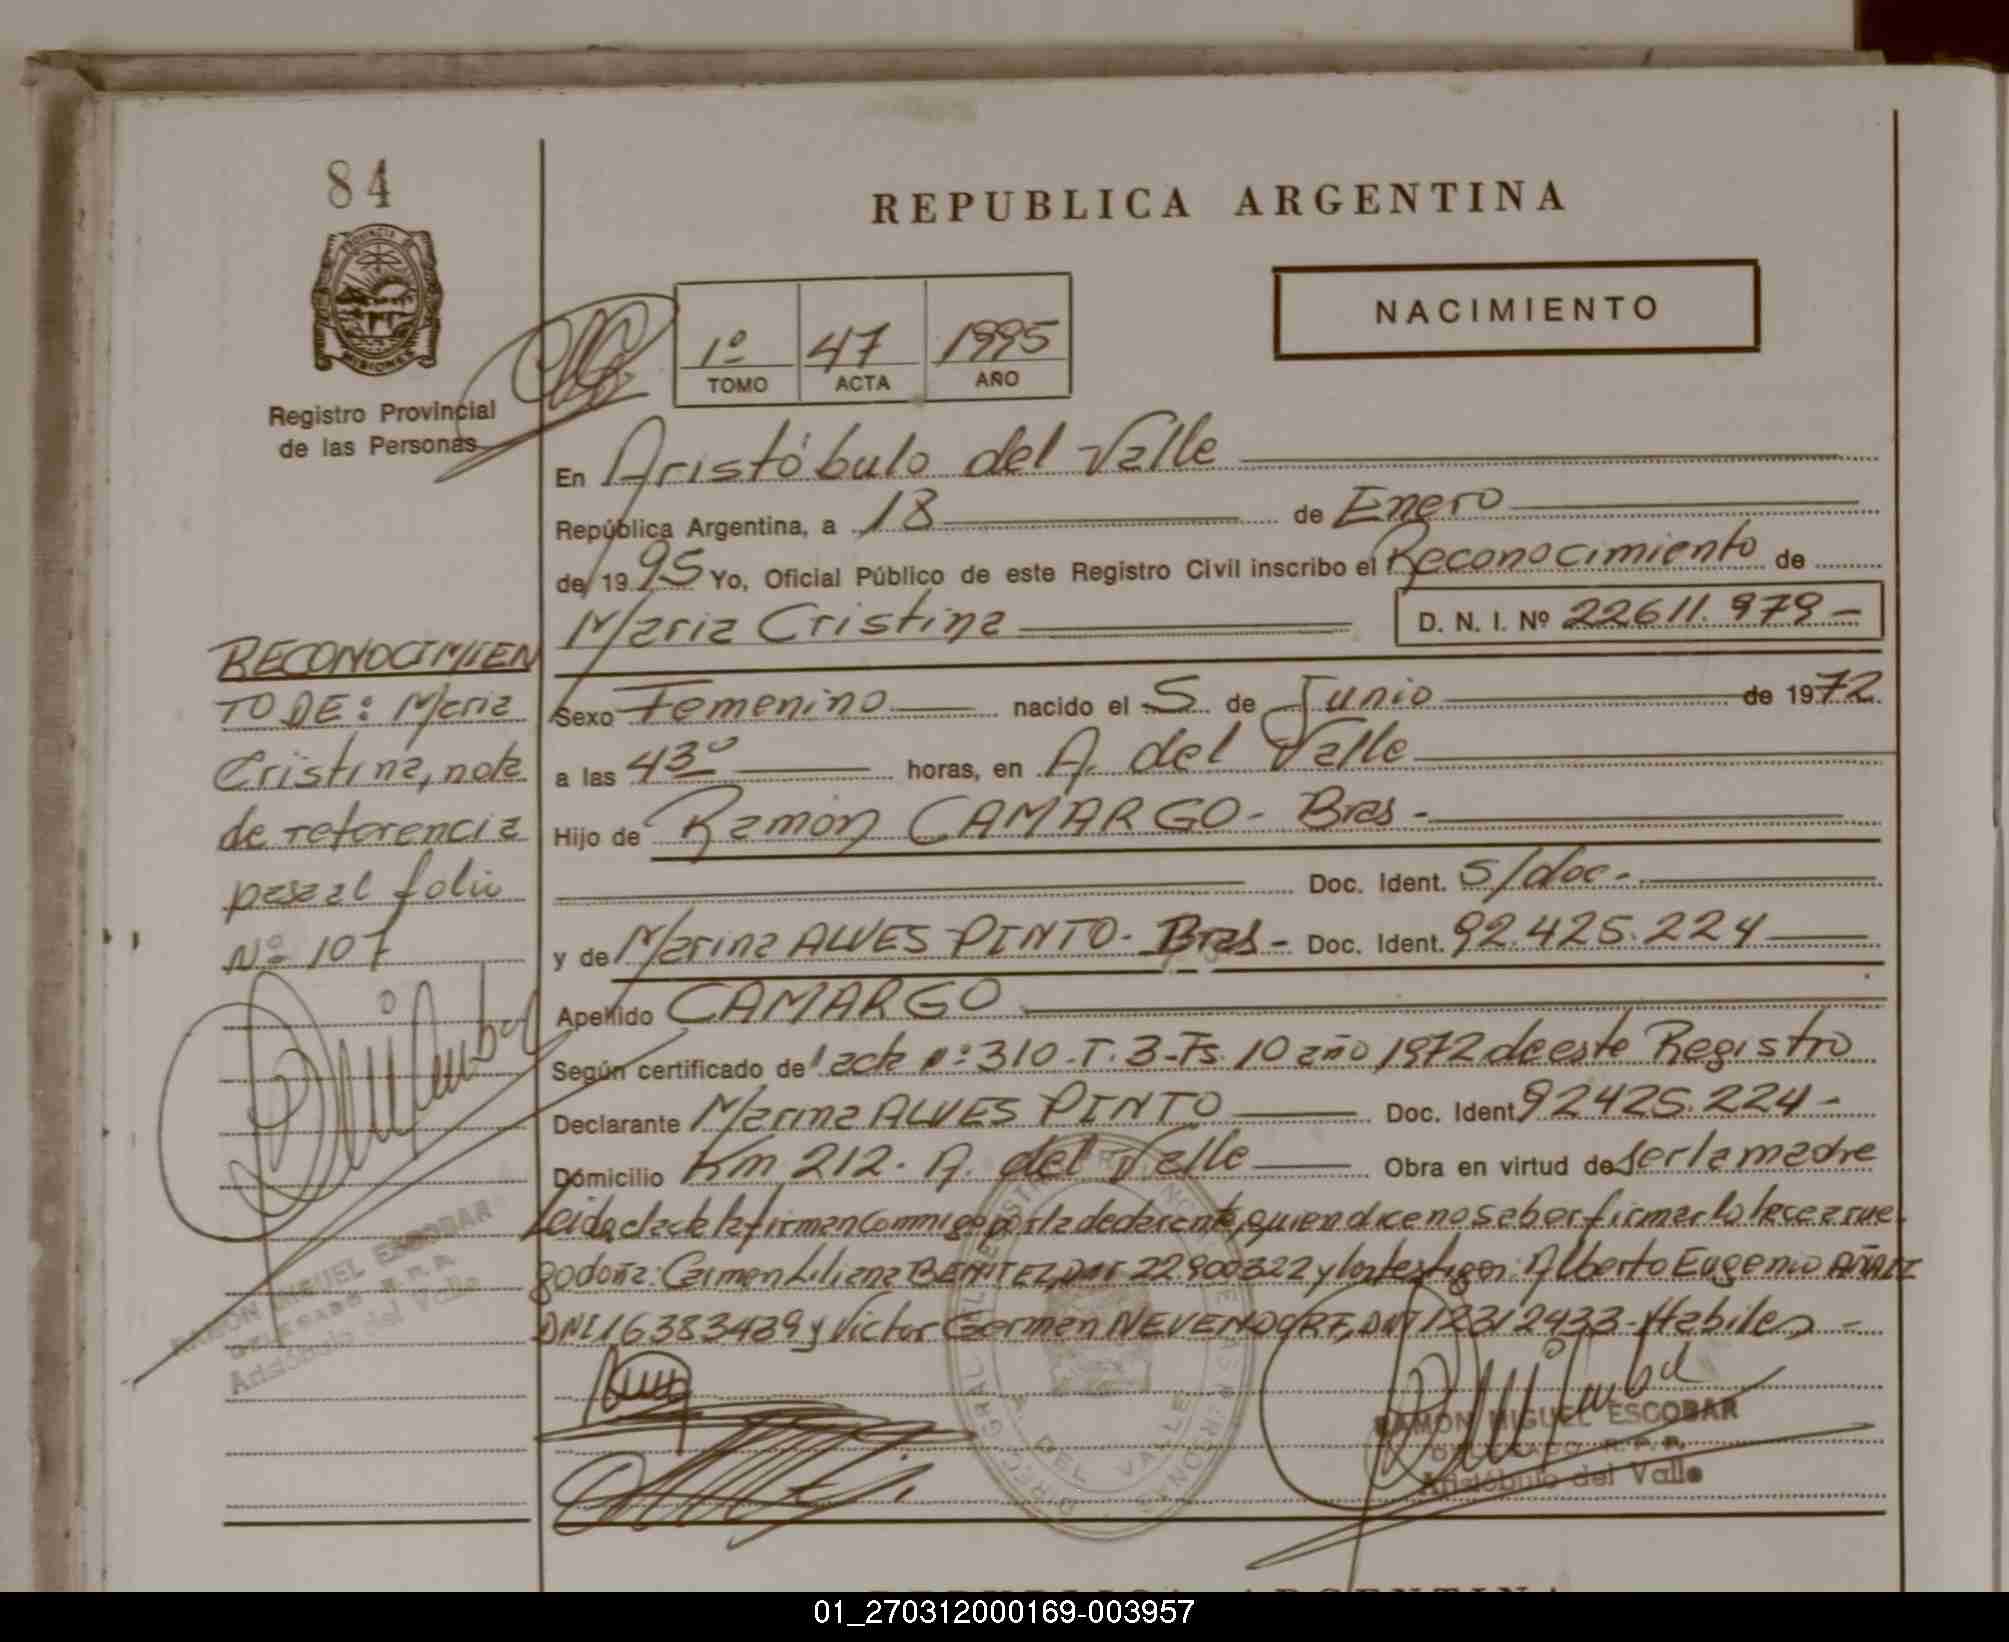 84
REPUBLICA ARGENTINA
PROVINCIA DE
MISIONES
Registro Provincial
de las Personas
NACIMIENTO
1º 47 1995
TOMO ACTA AÑO
En Aristóbulo del Valle
República Argentina, a 18 de Enero
de 19 95 Yo, Oficial Público de este Registro Civil inscribo el Reconocimiento de
Maria Cristina D. N. I. Nº 22611.979-
Sexo Femenino nacido el 5 de Junio de 1972.
a las 4 30 horas, en A. del Valle
Hijo de Ramón CAMARGO - Bras -
Doc. Ident. S/doc -
y de Marina ALVES PINTO - Bras - Doc. Ident. 92.425.224
Apellido CAMARGO
Según certificado de acta nº 310 - T. 3 - Fs. 10 año 1972 de este Registro
Declarante Marina ALVES PINTO Doc. Ident 92425.224 -
Domicilio Km 212 - A. del Valle Obra en virtud de ser la madre
Leida el acta la firman conmigo por la declarante, quien dice no saber firmar lo hace a rue
go doña: Carmen Liliana BENITEZ, DNI 22900322 y los testigos: Alberto Eugenio
DNI 16383489 y Victor German NEVENDORF, DNI 12312433 - Habiles -
RAMON MIGUEL ESCOBAR
DELEGADO R. P. P.
Aristóbulo del Valle
RECONOCIMIEN
TO DE: Maria
Cristina, nota
de referencia
pasa al folio
Nº 107
RAMON MIGUEL ESCOBAR
DELEGADO R. P. P.
Aristóbulo del Valle
REPUBLICA ARGENTINA
01_270312000169-003957